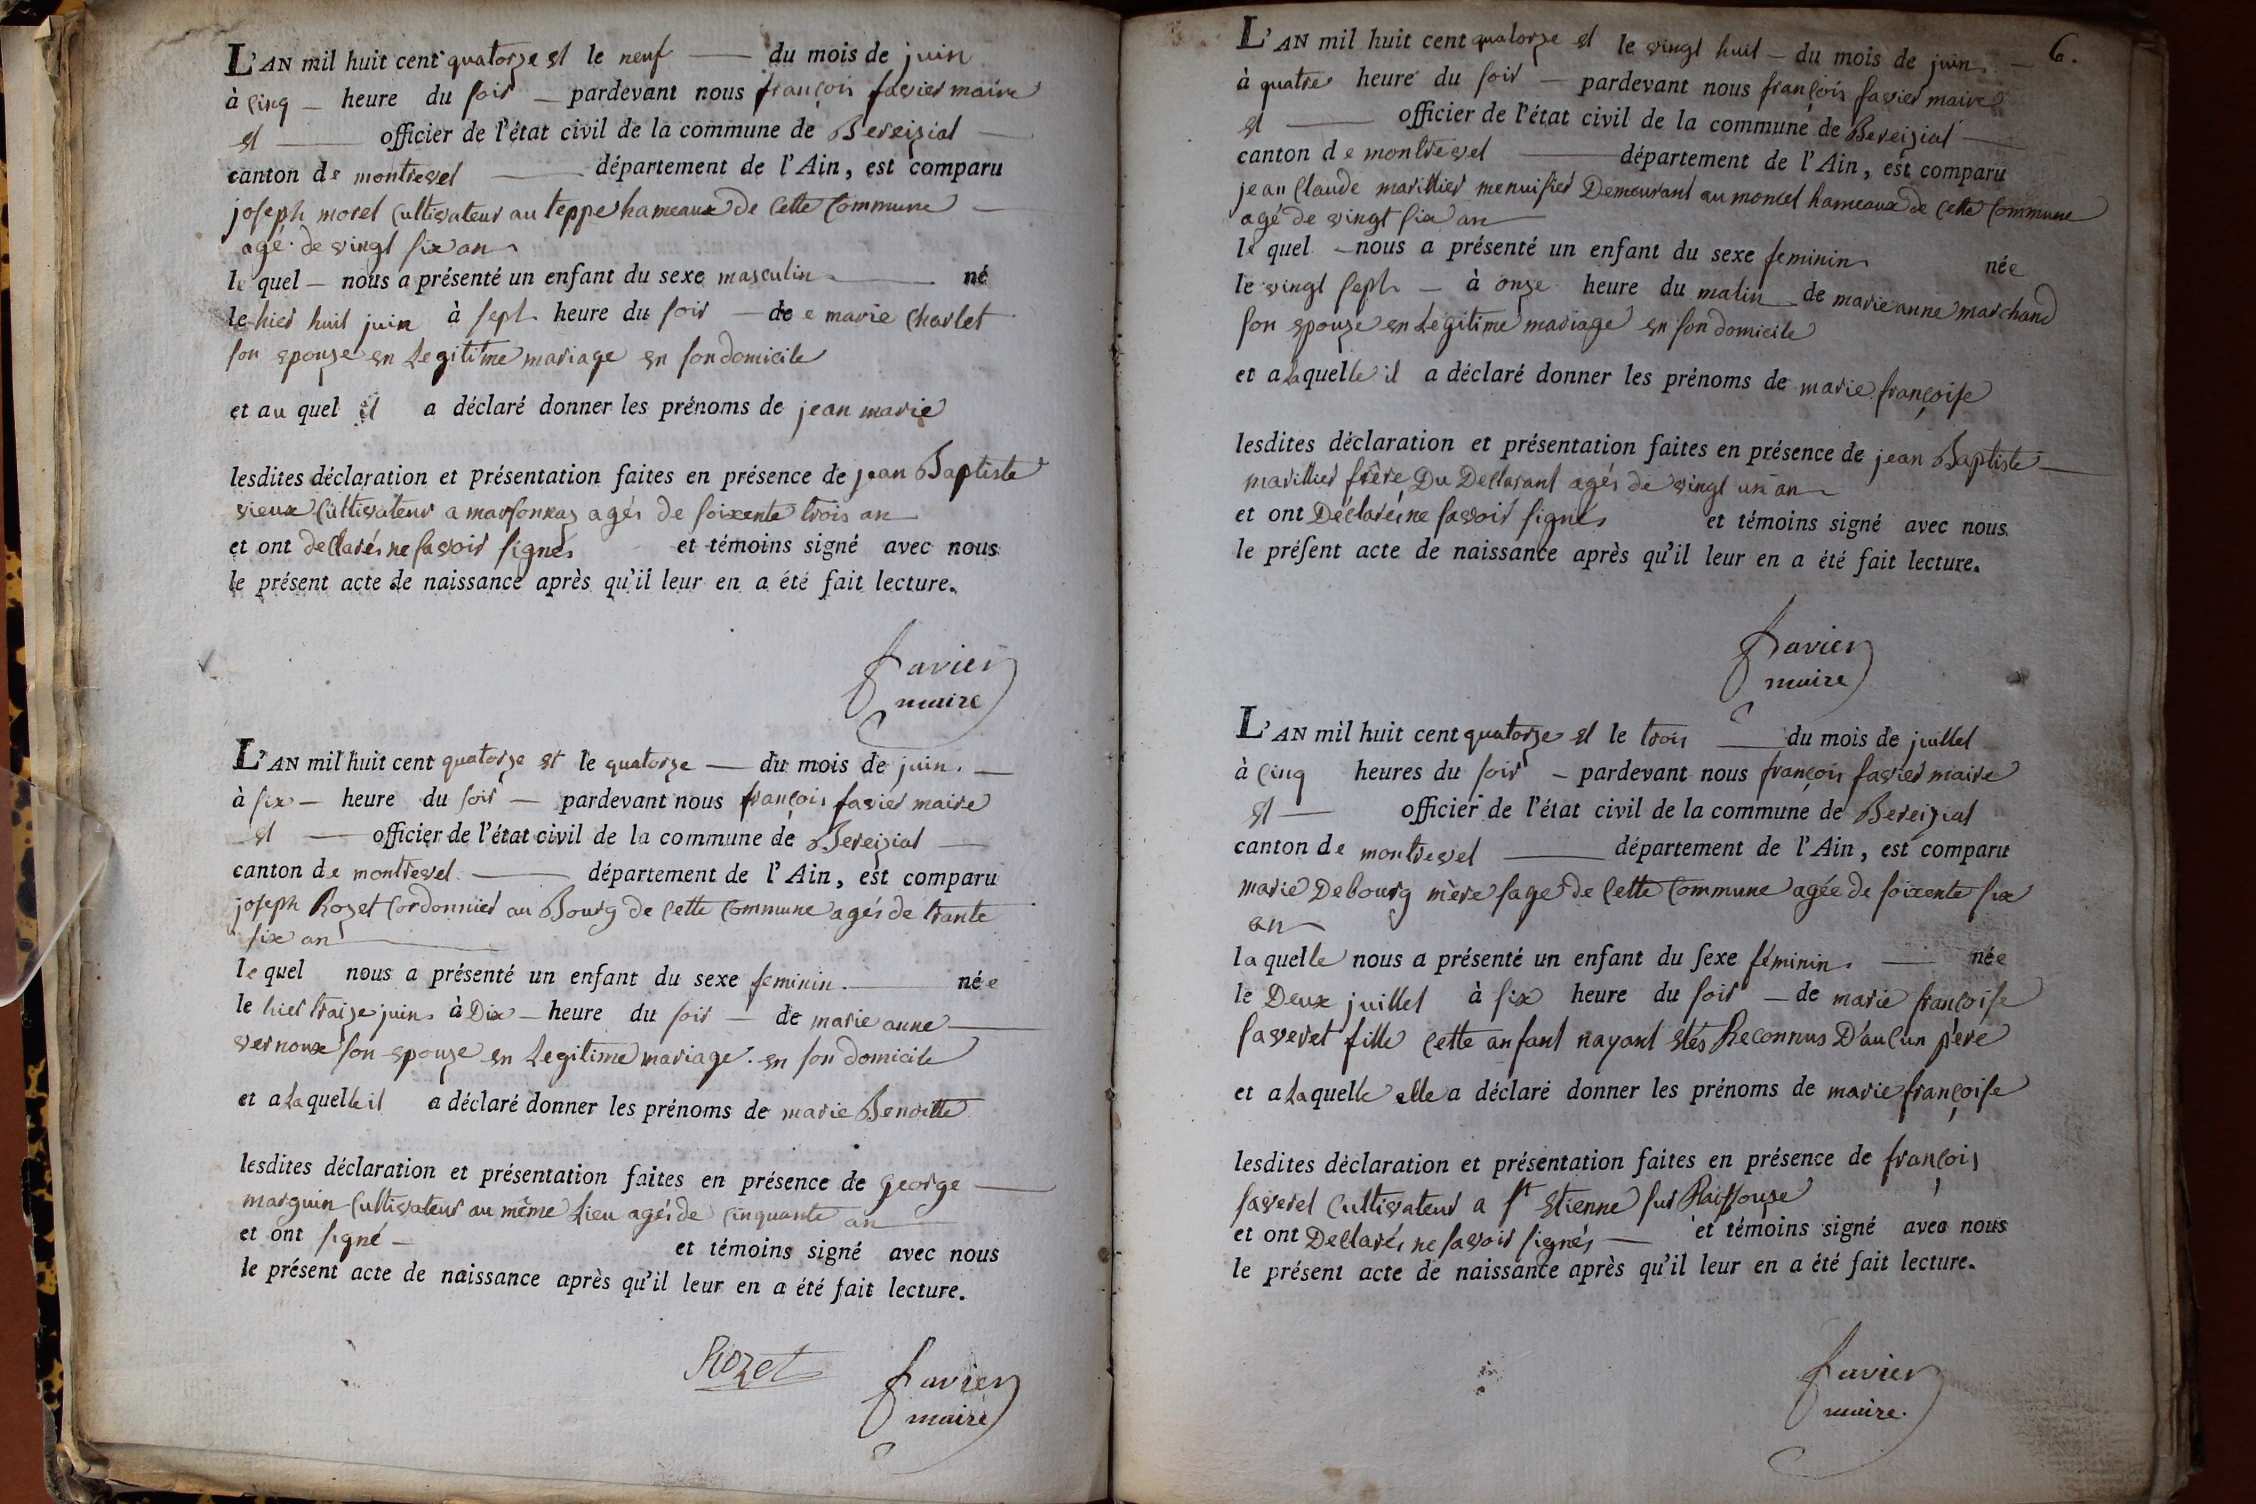 L'AN mil huit cent quatorze et le neuf — du mois de juin
à cinq — heure du soir — pardevant nous françois favier maire
et — officier de l'état civil de la commune de Bereiziat —
canton de montrevel — département de l'Ain, est comparu
joseph morel Cultivateur au teppe hameaux de Cette Commune —
agé de vingt six an
le quel — nous a présenté un enfant du sexe masculin — né
le hier huit juin à sept heure du soir — de e marie Charlet
son epouze en Legitime mariage en son domicile
et au quel il a déclaré donner les prénoms de jean marie
lesdites déclaration et présentation faites en présence de jean Baptiste
vieux Cultivateur a marsonnas agés de soixente trois an
et ont declarés ne savoir signés et témoins signé avec nous
le présent acte de naissance après qu'il leur en a été fait lecture.
favier
maire
L'AN mil huit cent quatorze et le quatorze — du mois de juin. —
à six — heure du soir — pardevant nous françois favier maire
et — officier de l'état civil de la commune de Bereiziat —
canton de montrevel — département de l'Ain, est comparu
joseph Rozet Cordonnier au Bourg de Cette Commune agés de trante
six an —
le quel nous a présenté un enfant du sexe feminin. — née
le hier traize juin à Dix — heure du soir — de marie anne —
vernoux son epouze en Legitime mariage. en son domicile
et a La quelle il a déclaré donner les prénoms de marie Benoitte
lesdites déclaration et présentation faites en présence de George —
marguin Cultivateur au même Lieu agés de Cinquante an
et ont signé — et témoins signé avec nous
le présent acte de naissance après qu'il leur en a été fait lecture.
Rozet
favier
maire
6.
L'AN mil huit cent quatorze et le vingt huit — du mois de juin —
à quatre heure du soir — pardevant nous françois favier maire
et — officier de l'état civil de la commune de Bereiziat —
canton de montrevel — département de l'Ain, est comparu
jean Claude marillier menuisier Demeurant au moncel hameaux de Cette Commune
agé de vingt six an —
le quel — nous a présenté un enfant du sexe feminin née
le vingt sept — à onze heure du matin de marie anne marchand
son epouze en Legitime mariage en son domicile
et a La quelle il a déclaré donner les prénoms de marie françoise
lesdites déclaration et présentation faites en présence de jean Baptiste —
marillier frère Du Declarant agés de vingt un an —
et ont Déclarés ne savoir signés et témoins signé avec nous
le présent acte de naissance après qu'il leur en a été fait lecture.
favier
maire
L'AN mil huit cent quatorze et le trois — du mois de juillet
à Cinq heures du soir — pardevant nous françois favier maire
et — officier de l'état civil de la commune de Bereiziat
canton de montrevel — département de l'Ain, est comparu
marie Debourg mère sage de Cette Commune agée de soixente six
an
la quelle nous a présenté un enfant du sexe féminin. — née
le Deux juillet à six heure du soir — de marie françoise
faveret fille Cette anfant nayant étés Reconnus D'auCun père
et a La quelle elle a déclaré donner les prénoms de marie françoise
lesdites déclaration et présentation faites en présence de françois
faveret Cultivateur a st Etienne sur Raissouze
et ont Declarés ne savoir signés — et témoins signé avec nous
le présent acte de naissance après qu'il leur en a été fait lecture.
favier
maire.